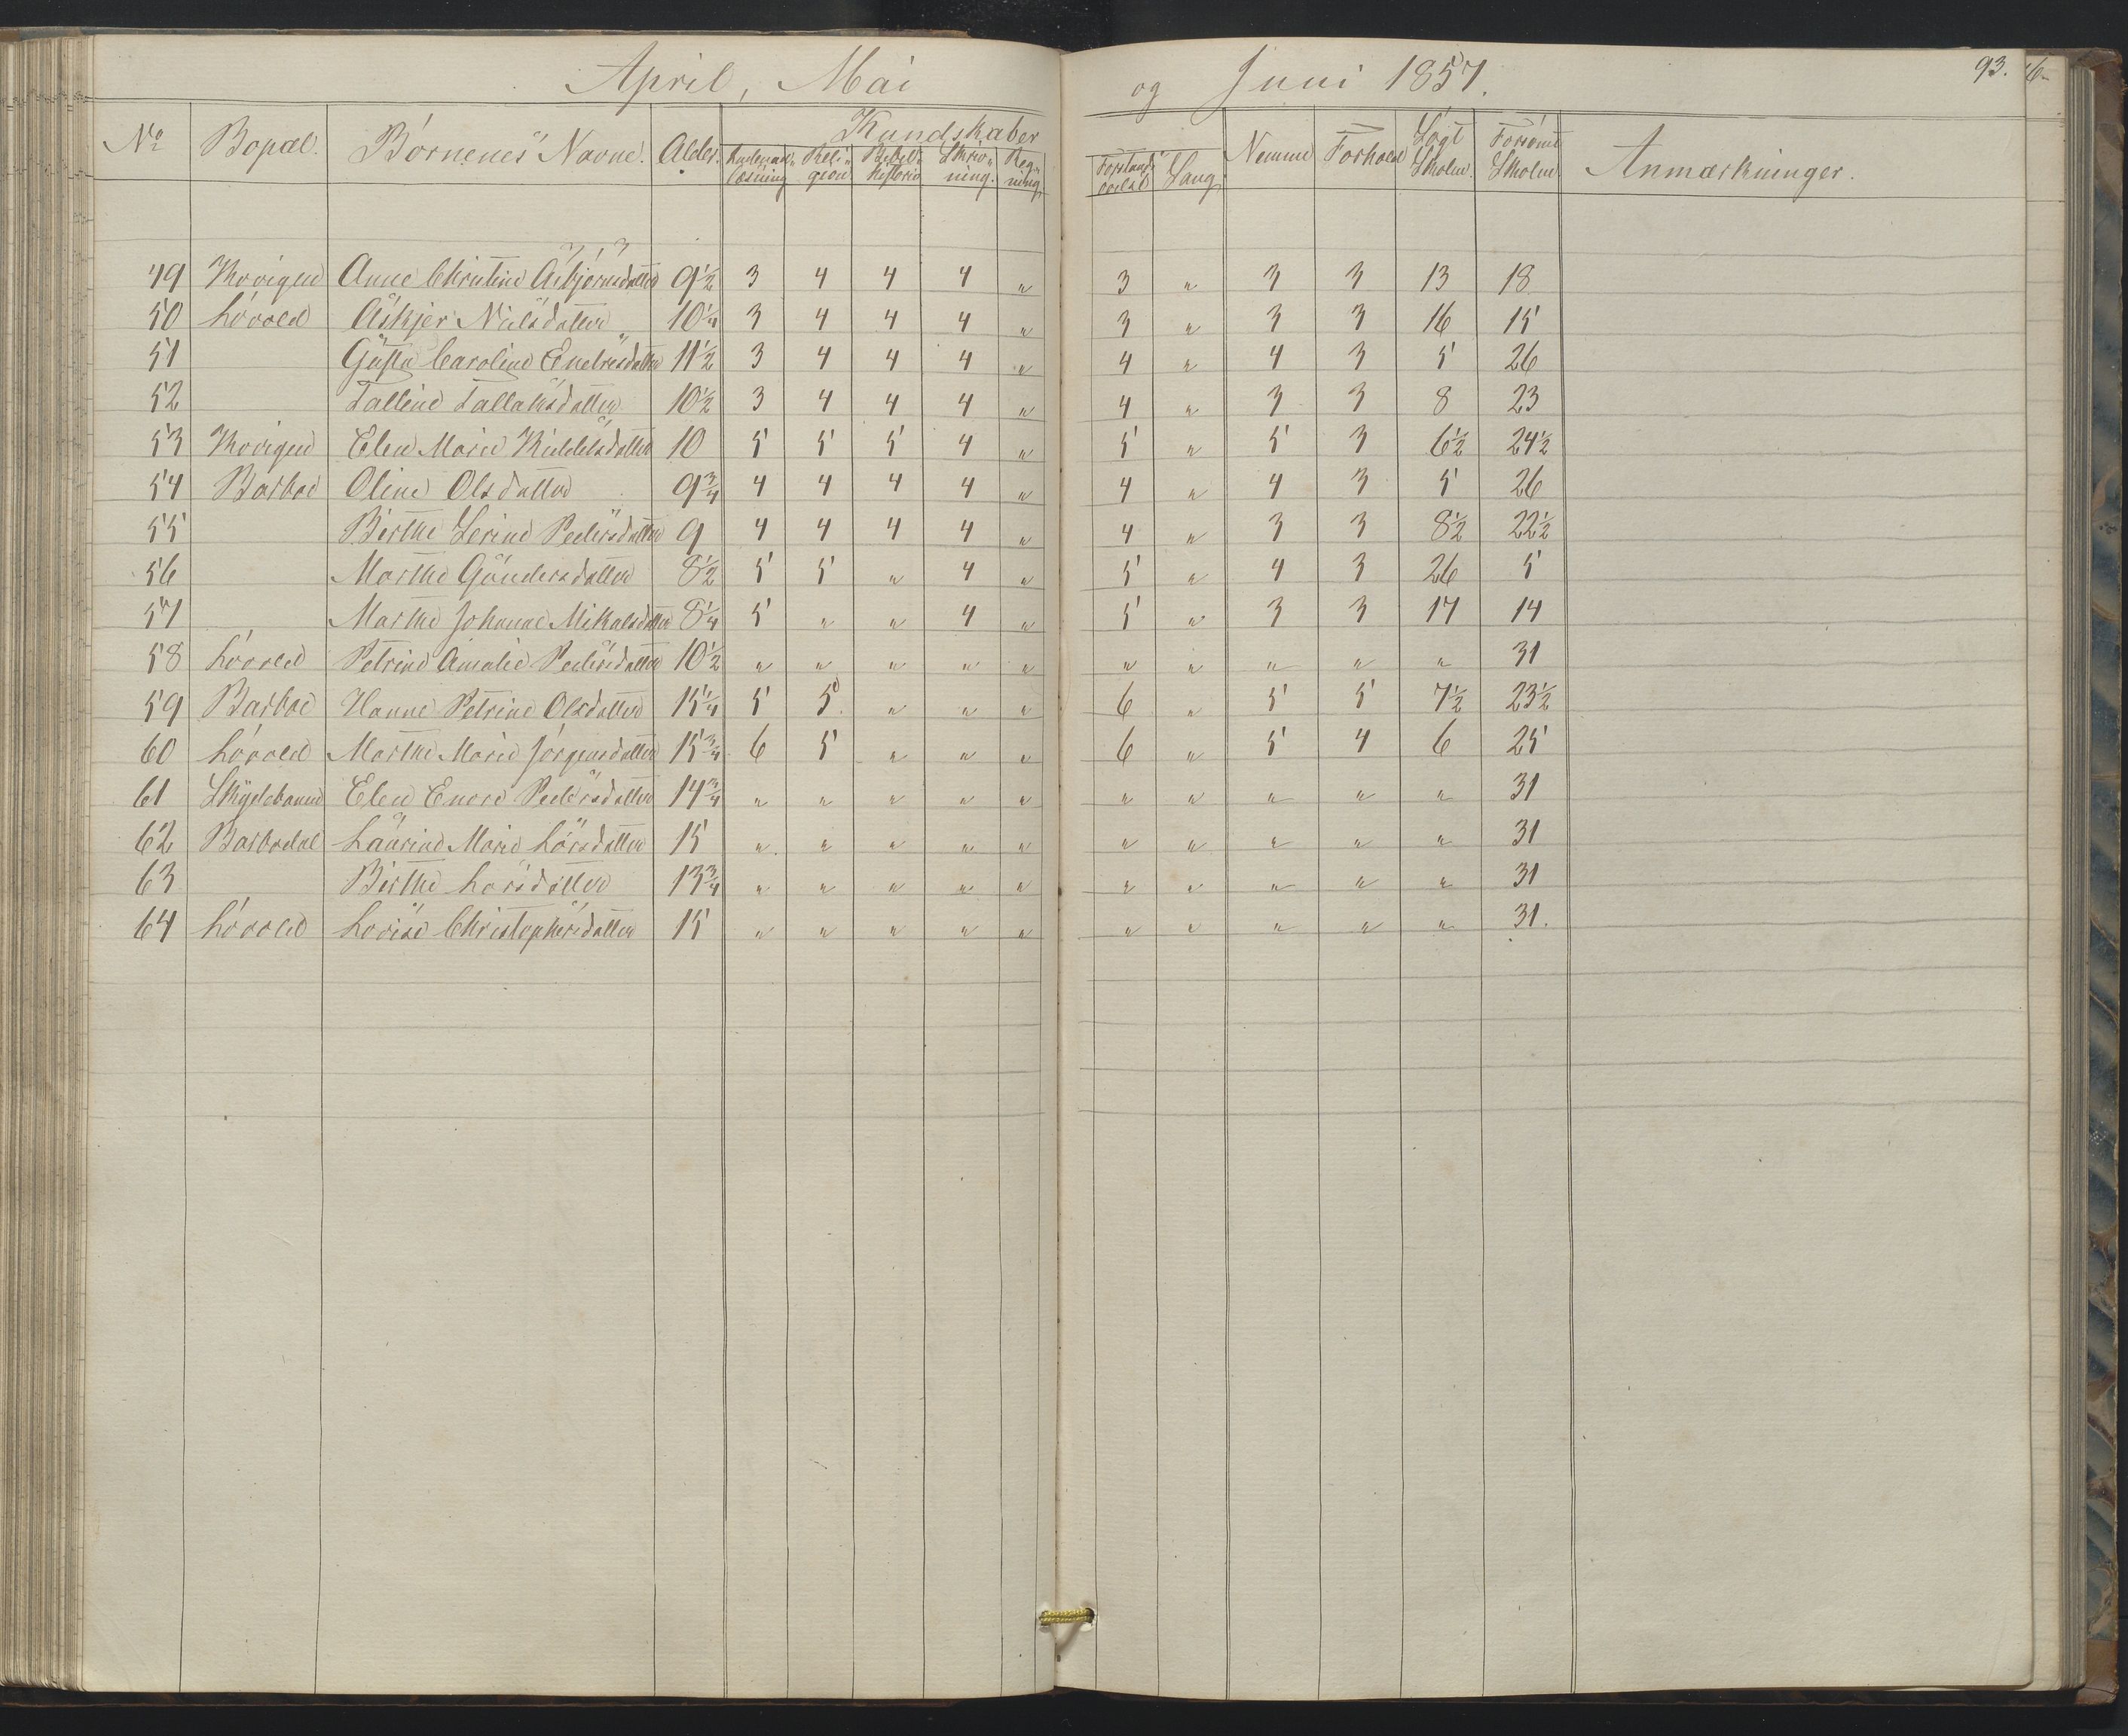 April, Mai og Juni 1857. 93.
No Bopæl. Börnenes Navne. Alder. Kundskaber Nemme Forhold Sögt Skolen. Forsömt Skolen Anmærkninger.
Indenad- læsning Reli- gion Bibel- historie Skriv- ning. Reg- ning Sang
49 Anne Christine Asbjörnsdatter 9½ 3 4 4 4 " 3 " 3 3 13 18
50 Lövold Askjer Nielsdatter 10¼ 3 4 4 4 " 3 " 3 3 16 15
51 Gusta Caroline Endresdatter 11½ 3 4 4 4 " 4 " 4 3 5 26
52 Talline Tallaksdatter 10½ 3 4 4 4 " 4 " 3 3 8 23
53 Elen Marie Kiddelsdatter 10 5 5 5 4 " 5 " 5 3 6½ 24½
54 Barboe Oline Olsdatter 9¾ 4 4 4 4 " 4 " 4 3 5 26
55 Birthe Serine Pedersdatter 9 4 4 4 4 " 4 " 3 3 8½ 22½
56 Marthe Gundersdatter 8½ 5 5 " 4 " 5 " 4 3 26 5
57 Marthe Johanne Mikalsdatter 8¼ 5 " " 4 " 5 " 3 3 17 14
58 Lövold Petrine Amalie Pedersdatter 10½ " " " " " " " " " " 31
59 Barboe Hanne Petrine Olsdatter 15¼ 5 5 " " " 6 " 5 5 7½ 23½
60 Lövold Marthe Marie Jörgensdatter 15¾ 6 5 " " " 6 " 5 4 6 25
61 Skydebanen Elen Enore Pedersdatter 14¾ " " " " " " " " " " 31
62 Barbodal Laurine Marie Larsdatter 15 " " " " " " " " " " 31
63 Birthe Larsdatter 13¾ " " " " " " " " " " 31
64 Lövold Lovise Christophersdatter 15 " " " " " " " " " " 31.